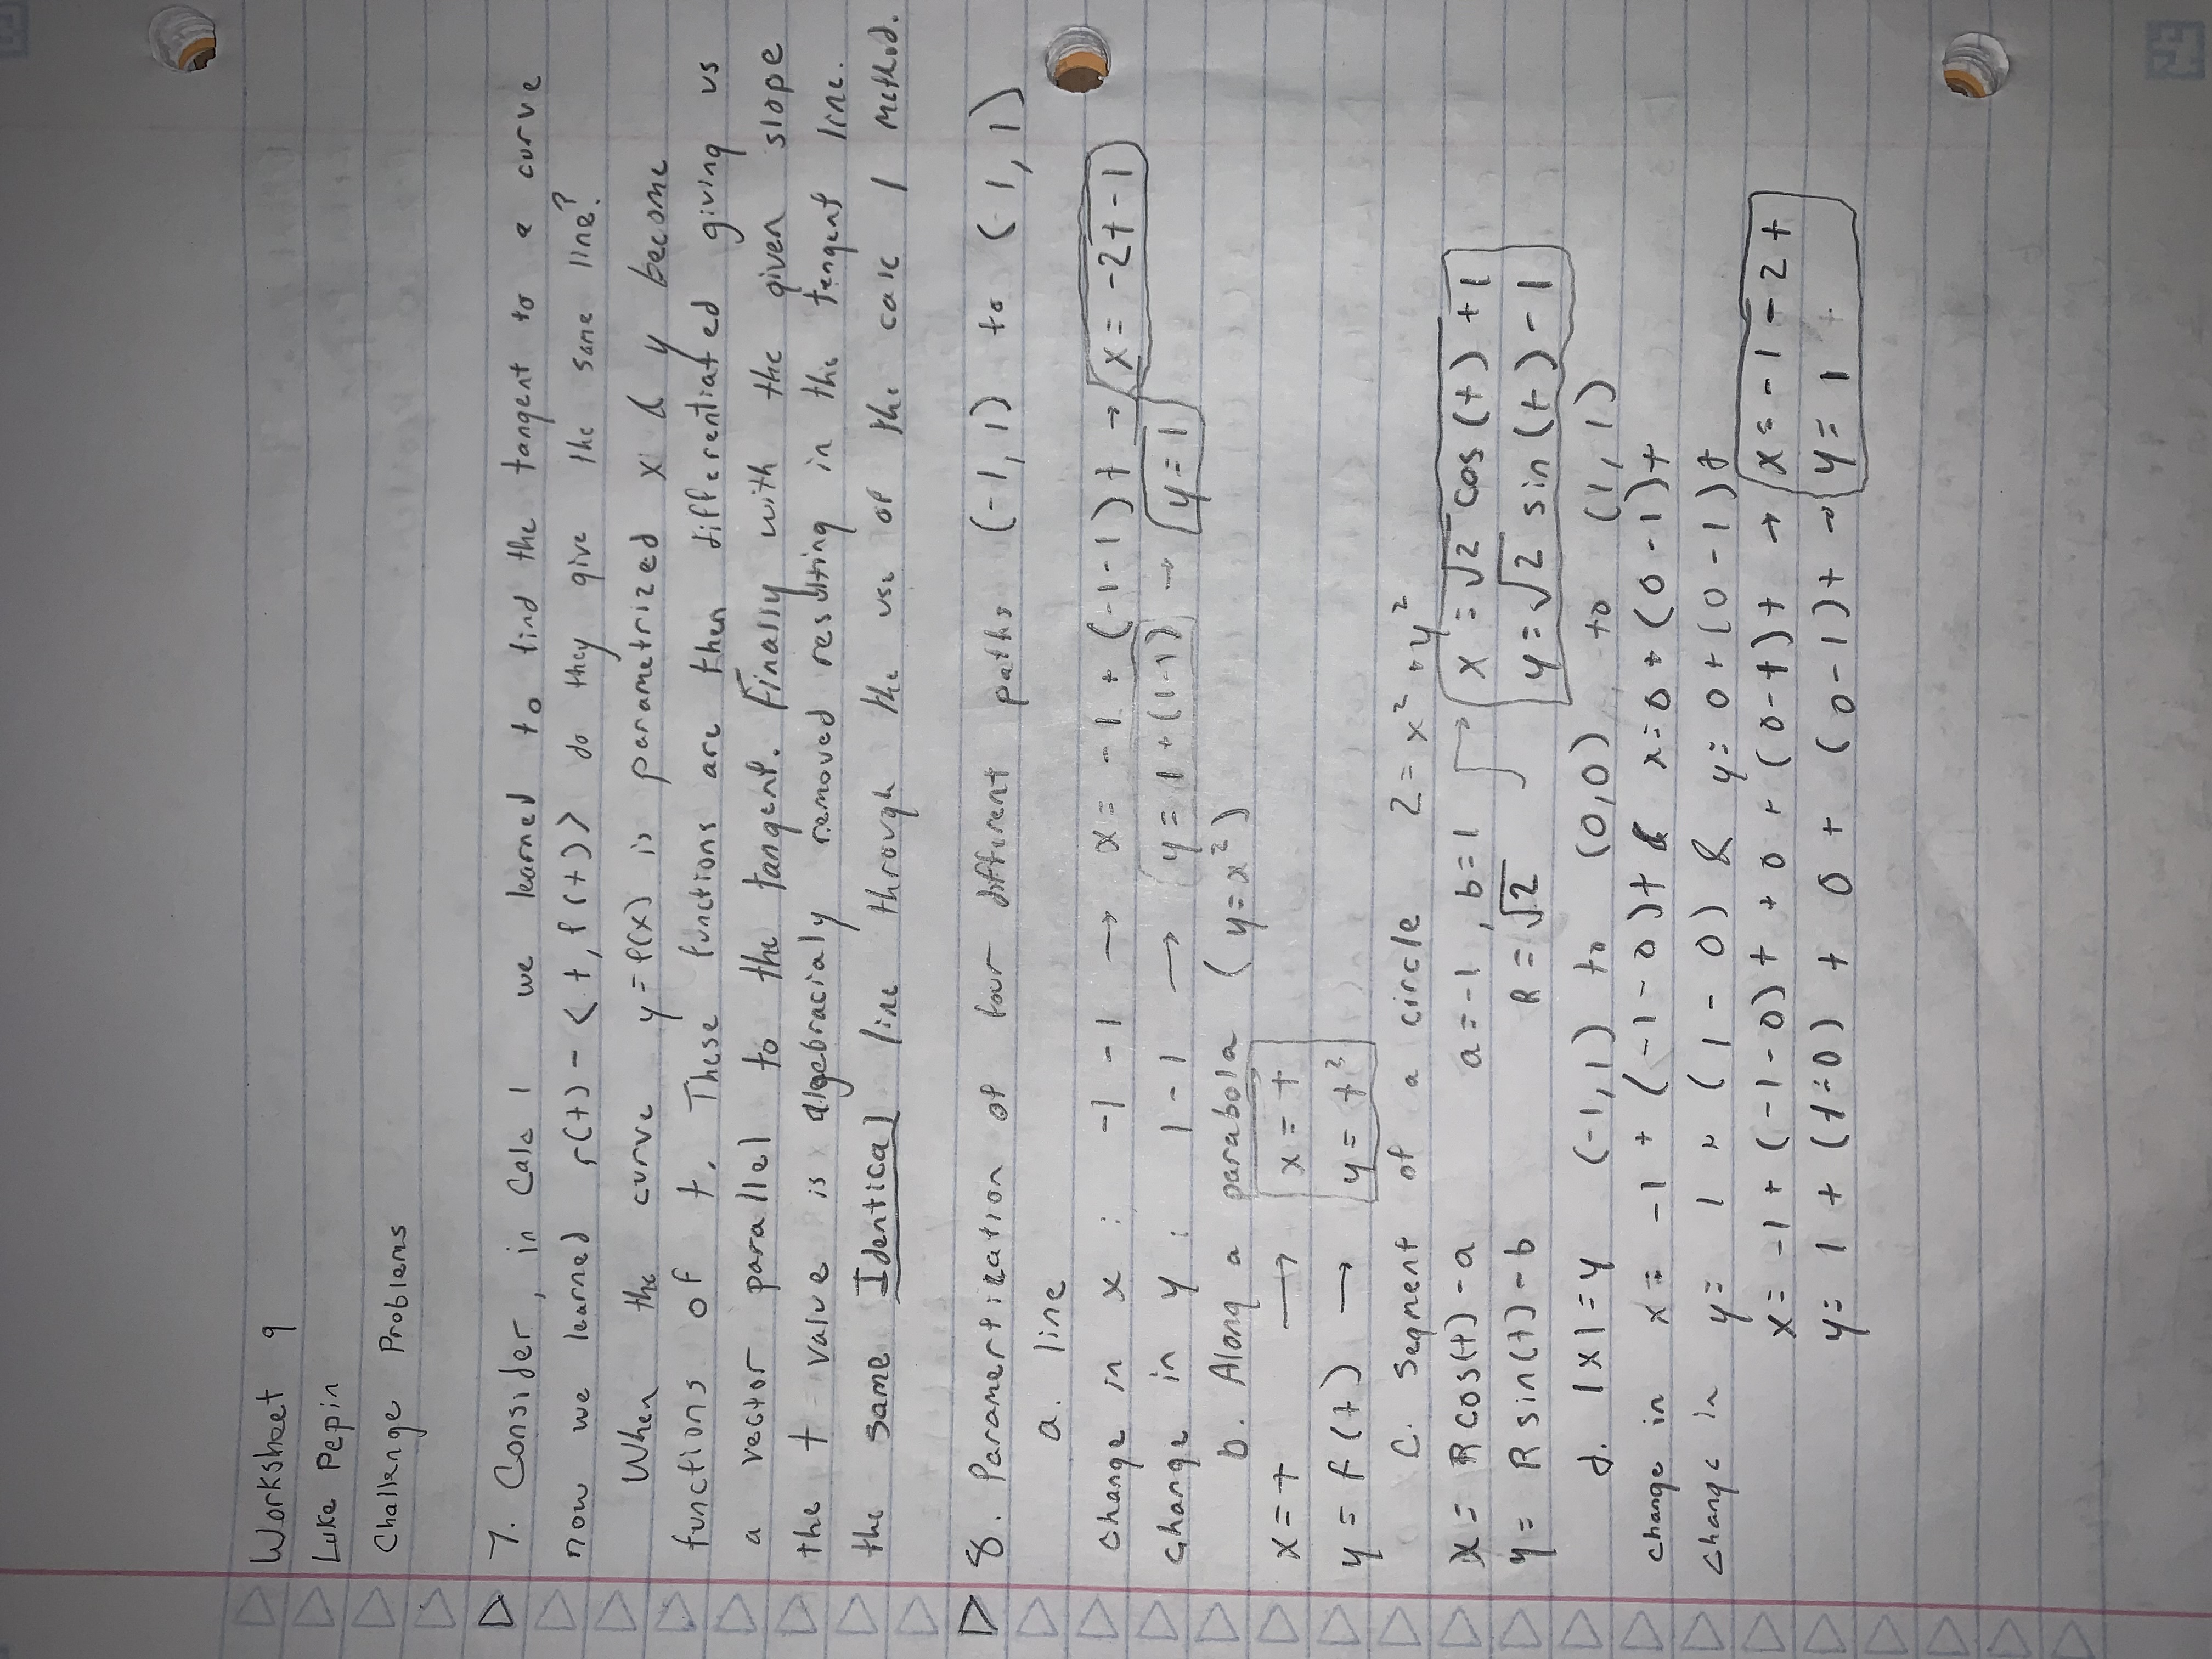 Worksheet 9
Luke Pepin
Challenge Problems
7. Consider, in Calc 1 we learned to find the tangent to a curve
now we learned r(t) - <t, f(t)> do they give the same line?
When the curve y=f(x) is parametrized x & y become
functions of t. These functions are then differentiated giving us
a vector parallel to the tangent. Finally with the given slope
the t value is algebracialy removed resulting in the tengent line.
the same Identical line through the use of the calc 1 method.
8. Paramertization of four different paths (-1,1) to (1,1)
a. line
change in x : -1 -1 → x = -1 + (-1-1)t → x = -2t-1
change in y : 1-1 → y = 1+(1-1) → y=1
b. Along a parabola (y=x²)
x=t → x=t
y=f(t) → y=t²
C. Segment of a circle 2=x²+y²
x= Rcos(t)-a a=-1, b=1 x=√2 cos(t)+1
y= Rsin(t)-b R=√2 y=√2 sin(t)-1
d. |x|=y (-1,1) to (0,0) to (1,1)
change in x= -1 + (-1-0)t & x=0+(0-1)t
change in y= 1 + (1-0) & y=0+(0-1)t
x= -1+(-1-0)t + 0 + (0-1)t → x=-1-2t
y= 1 + (1-0) + 0 + (0-1)t → y=1